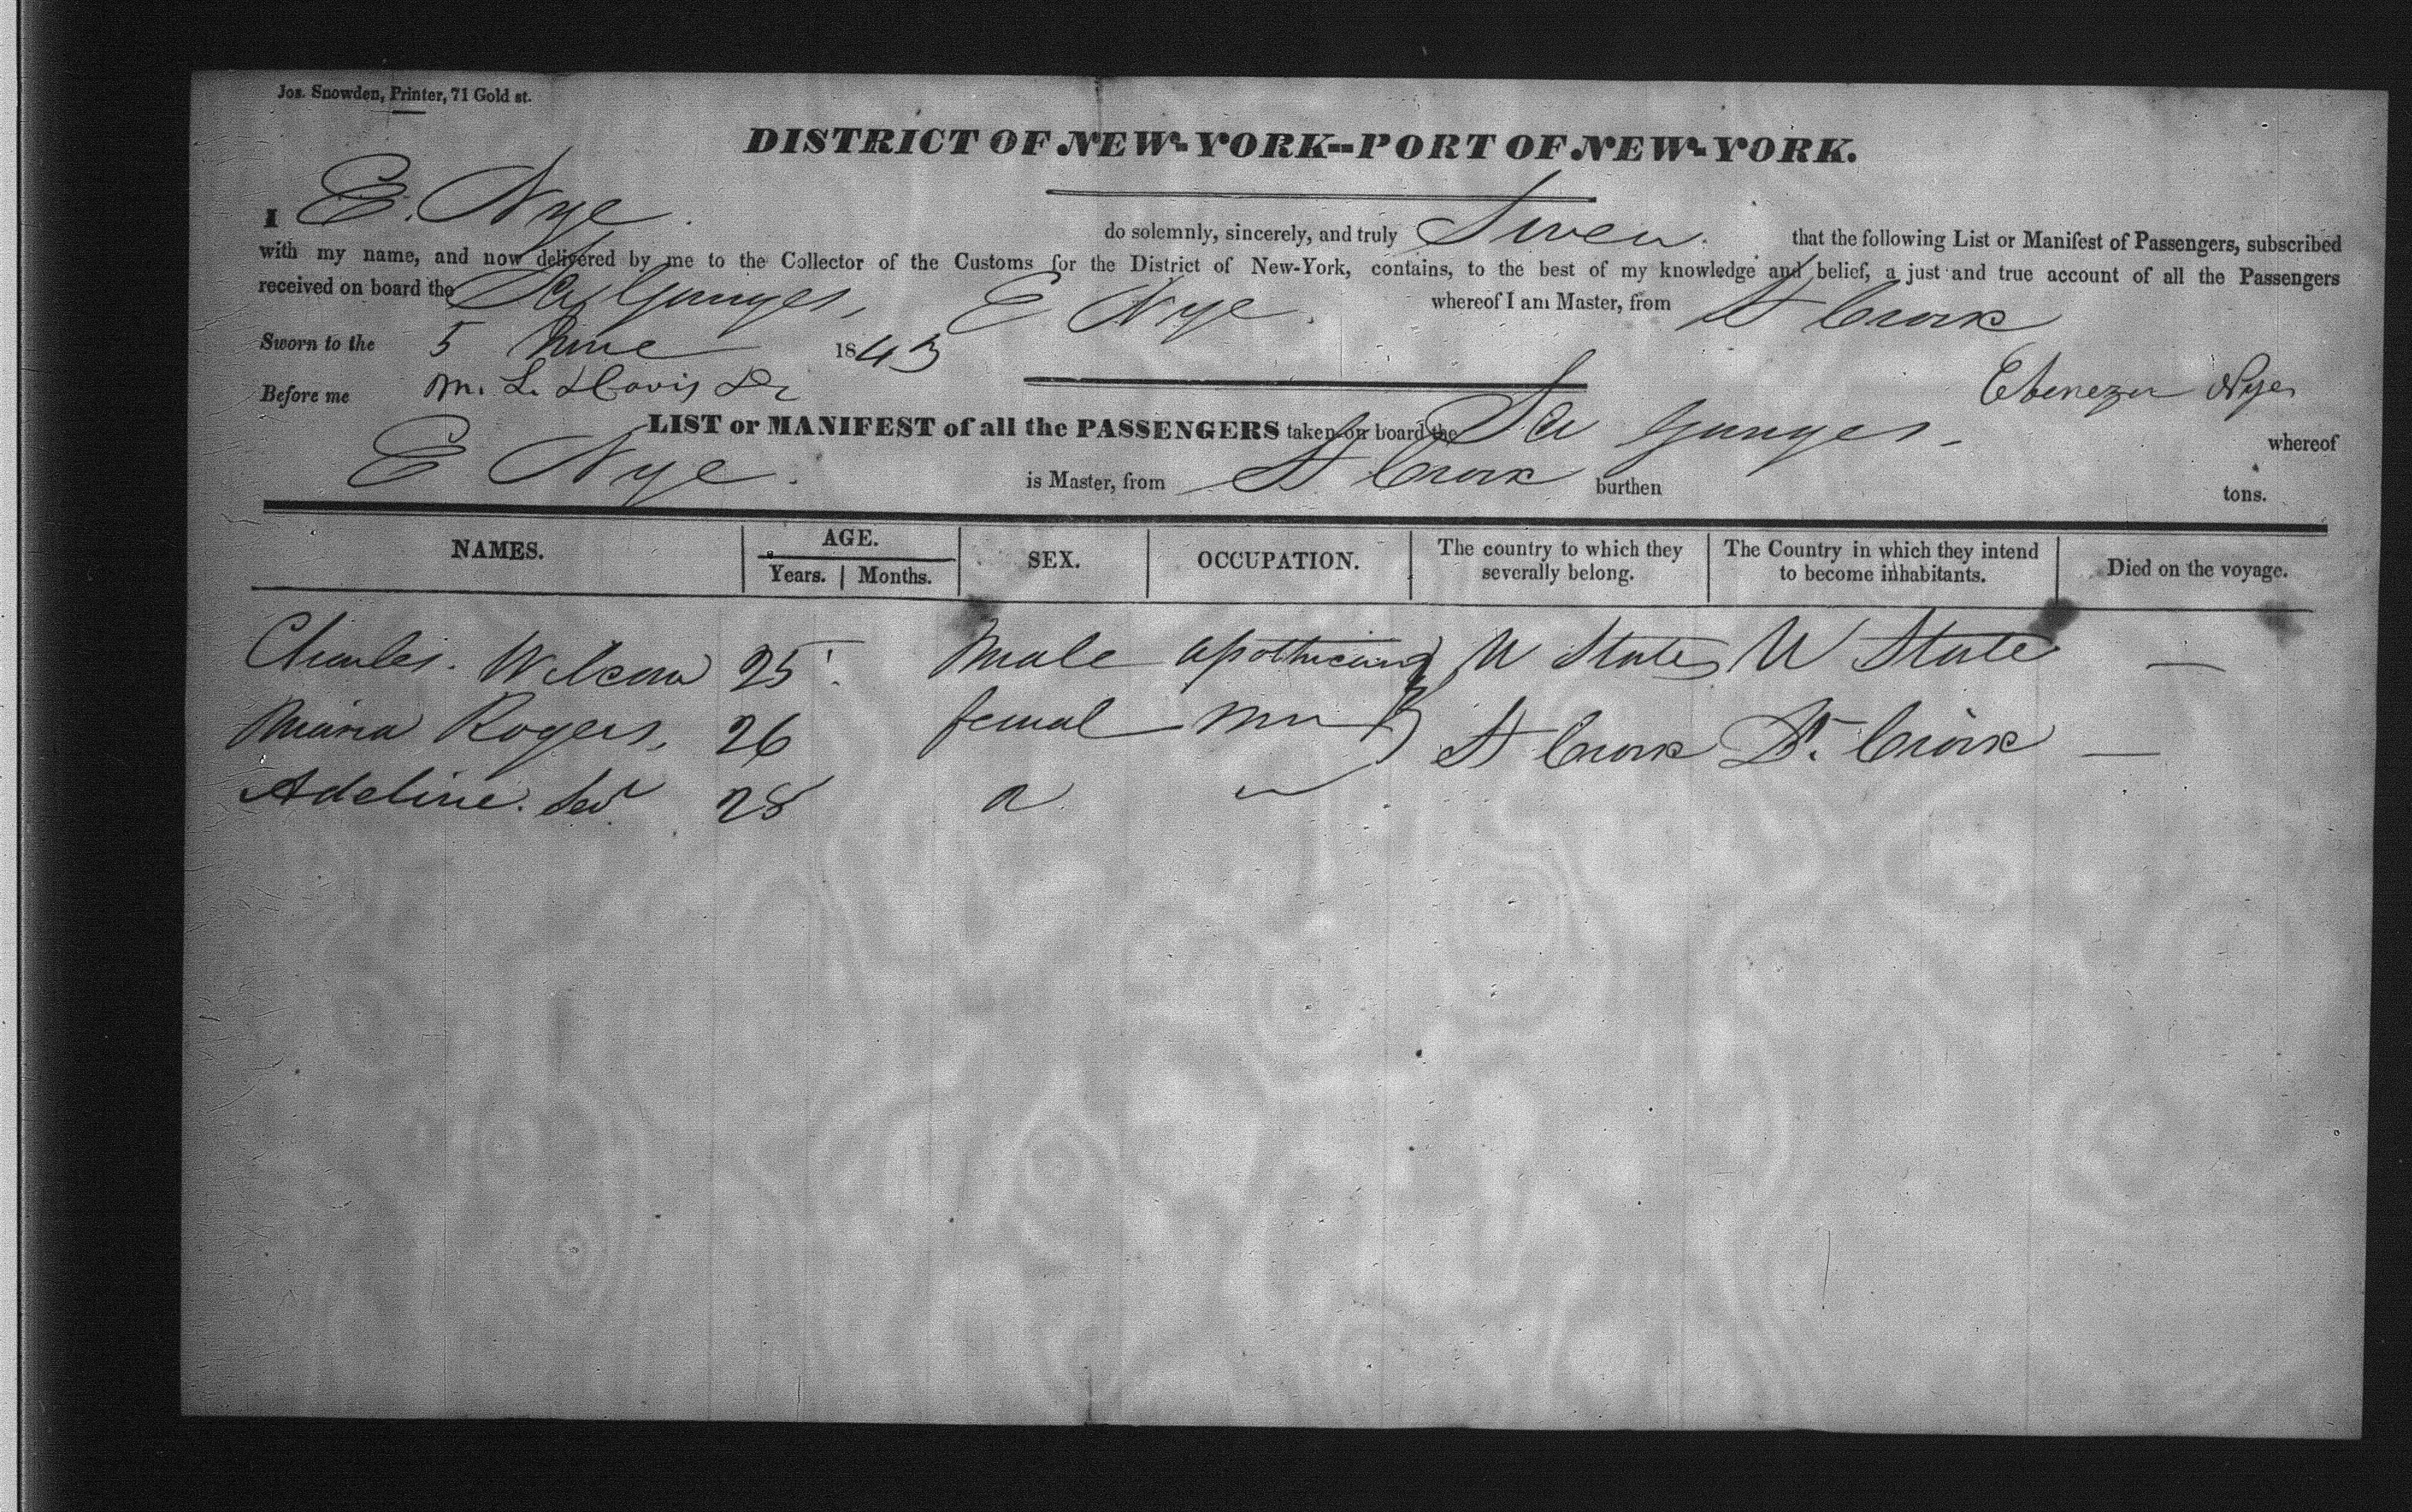 Jos. Snowden, Printer, 71 Gold st.
DISTRICT OF NEW-YORK--PORT OF NEW-YORK.
I E. Nye do solemnly, sincerely, and truly Swear that the following List or Manifest of Passengers, subscribed
with my name, and now delivered by me to the Collector of the Customs for the District of New-York, contains, to the best of my knowledge and belief, a just and true account of all the Passengers
received on board the Ganges, E Nye whereof I am Master, from St Croix
Sworn to the 5 June 1843
Before me M. L. Davis Ebenezer Nye
LIST or MANIFEST of all the PASSENGERS taken on board the Ganges whereof
E Nye. is Master, from St Croix burthen tons.
NAMES. AGE. SEX. OCCUPATION. The country to which they severally belong. The Country in which they intend to become inhabitants. Died on the voyage.
Years. Months.
Charles. 25 Male apothecary U States U State —
Maria Rogers, 26 femal St Croix St. Croix —
Adeline. 28